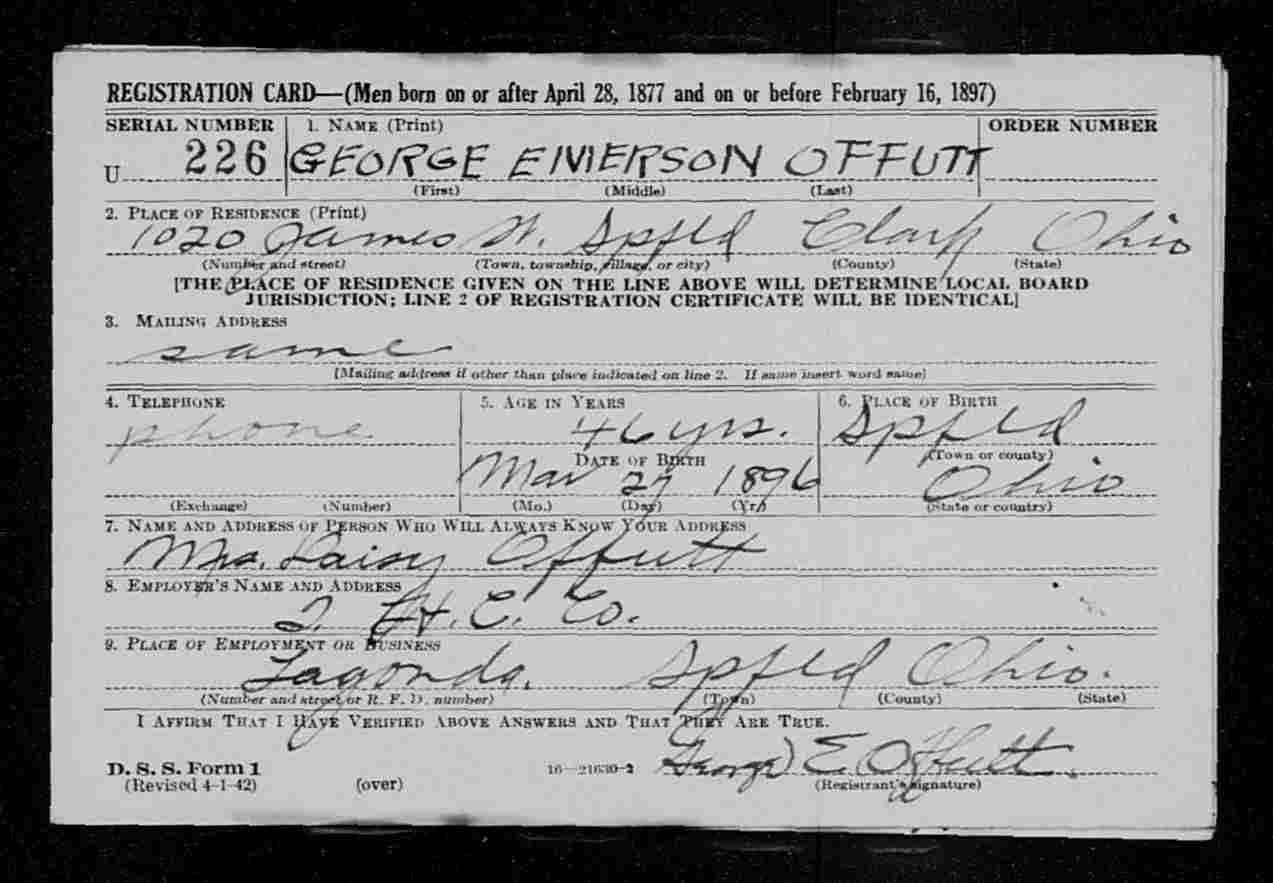 REGISTRATION CARD—(Men born on or after April 28, 1877 and on or before February 16, 1897)
SERIAL NUMBER 1. NAME (Print) ORDER NUMBER
U 226 GEORGE EMERSON OFFUTT
(First) (Middle) (Last)
2. PLACE OF RESIDENCE (Print)
1020 James St. Spfld Clark Ohio
(Number and street) (Town, township, village, or city) (County) (State)
[THE PLACE OF RESIDENCE GIVEN ON THE LINE ABOVE WILL DETERMINE LOCAL BOARD
JURISDICTION; LINE 2 OF REGISTRATION CERTIFICATE WILL BE IDENTICAL]
3. MAILING ADDRESS
same
[Mailing address if other than place indicated on line 2. If same insert word same]
4. TELEPHONE 5. AGE IN YEARS 6. PLACE OF BIRTH
phone 46 yrs. Spfld
DATE OF BIRTH (Town or county)
Mar 27 1896 Ohio
(Exchange) (Number) (Mo.) (Day) (Yr.) (State or country)
7. NAME AND ADDRESS OF PERSON WHO WILL ALWAYS KNOW YOUR ADDRESS
Mrs. Daisy Offutt
8. EMPLOYER'S NAME AND ADDRESS
H. C. Co.
9. PLACE OF EMPLOYMENT OR BUSINESS
Lagonda. Spfld Ohio.
(Number and street or R. F. D. number) (Town) (County) (State)
I AFFIRM THAT I HAVE VERIFIED ABOVE ANSWERS AND THAT THEY ARE TRUE.
George E Offutt.
D. S. S. Form 1 16—21630-2 (Registrant's signature)
(Revised 4-1-42) (over)